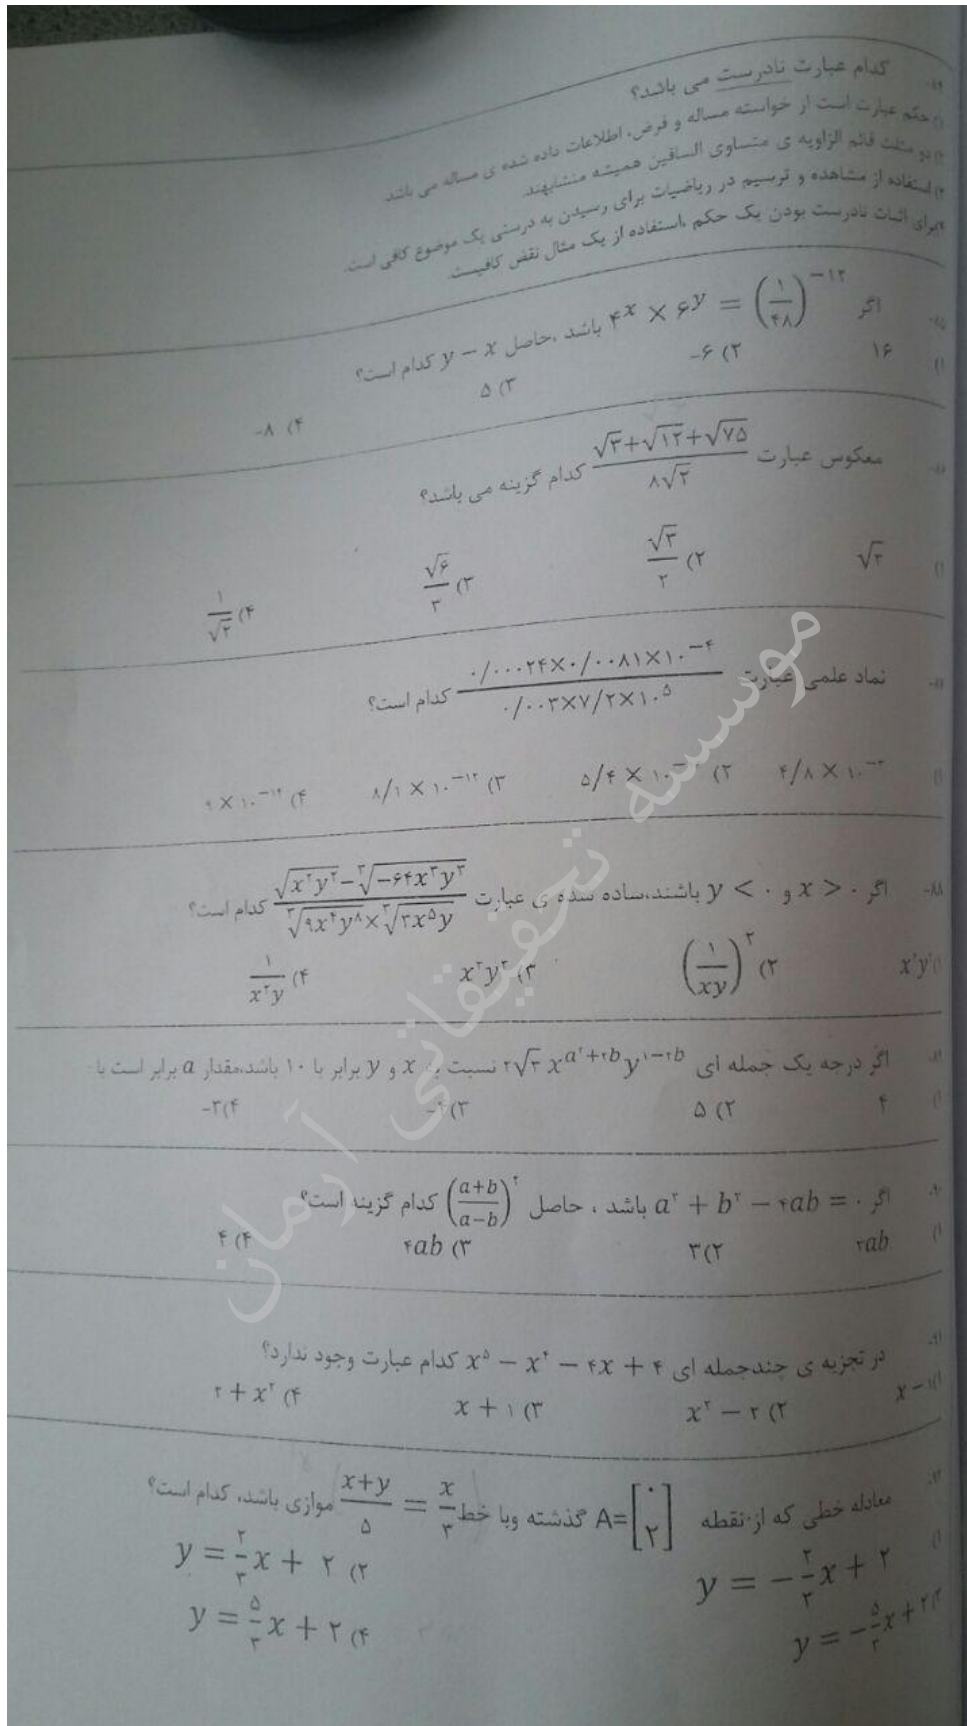 ۸۴- کدام عبارت نادرست می باشد؟
۱) حکم عبارت است از خواسته مساله و فرض، اطلاعات داده شده ی مساله می باشد.
۲) دو مثلث قائم الزاویه ی متساوی الساقین همیشه متشابهند.
۳) استفاده از مشاهده و ترسیم در ریاضیات برای رسیدن به درستی یک موضوع کافی است.
۴) برای اثبات نادرست بودن یک حکم ،استفاده از یک مثال نقض کافیست.
۸۵- اگر ۴^x × ۶^y = (۱/۴۸)^−۱۲ باشد ،حاصل y − x کدام است؟
۱) ۱۶ ۲) ۶- ۳) ۵ ۴) ۸-
۸۶- معکوس عبارت (√۳+√۱۲+√۷۵)/(۸√۲) کدام گزینه می باشد؟
۱) √۲ ۲) √۳/۲ ۳) √۶/۳ ۴) ۱/√۲
۸۷- نماد علمی عبارت (۰/۰۰۰۲۴×۰/۰۰۸۱×۱۰^−۴)/(۰/۰۰۳×۷/۲×۱۰^۵) کدام است؟
۱) ۴/۸ × ۱۰ ۲) ۵/۴ × ۱۰ ۳) ۸/۱ × ۱۰^−۱۲ ۴) ۹ × ۱۰^−۱۴
۸۸- اگر x > ۰ و y < ۰ باشند،ساده شده ی عبارت (√(x^۲y^۲) − ^۳√(−۶۴x^۳y^۳))/(^۳√(۹x^۴y^۸) × ^۳√(۳x^۵y)) کدام است؟
۱) x^۲y^۲ ۲) (۱/xy)^۲ ۳) x^۲y^۲ ۴) ۱/(x^۲y)
۸۹- اگر درجه یک جمله ای ۲√۳ x^(a^۲+۲b) y^(۱−۲b) نسبت به x و y برابر با ۱۰ باشد،مقدار a برابر است با:
۱) ۴ ۲) ۵ ۳) ۴) ۳-
۹۰- اگر a^۲ + b^۲ − ۴ab = ۰ باشد ، حاصل ((a+b)/(a−b))^۲ کدام گزینه است؟
۱) ۲ab ۲) ۳ ۳) ۴ab ۴) ۴
۹۱- در تجزیه ی چندجمله ای x^۵ − x^۴ − ۴x + ۴ کدام عبارت وجود ندارد؟
۱) x − ۱ ۲) x^۲ − ۲ ۳) x + ۱ ۴) ۲ + x^۲
۹۲- معادله خطی که از نقطه A=[۰ ۲] گذشته وبا خط x/۳ = (x+y)/۵ موازی باشد، کدام است؟
۱) y = −(۲/۳)x + ۲ ۲) y = (۲/۳)x + ۲
۳) y = −(۵/۳)x + ۲ ۴) y = (۵/۳)x + ۲
موسسه تحقیقاتی آرمان